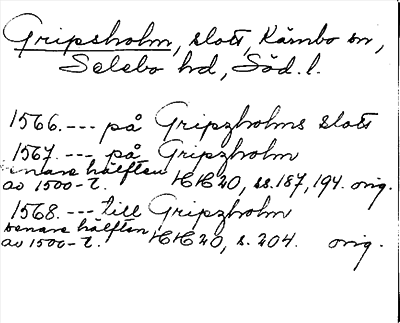 Gripsholm, slott, Kärnbo sn,
Selebo hd, Söd. l.
1566. --- på Gripzholms slott
1567. --- på Gripzholm
senare hälften
av 1500-t. HH 20, ss. 187, 194. orig.
1568. --- till Gripzholm
senare hälften
av 1500-t. HH 20, s. 204. orig.